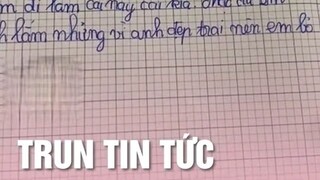 m đi làm cái này cái kia.
h lắm nhưng vì anh đẹp trai nên em bỏ
TRUN TIN TỨC